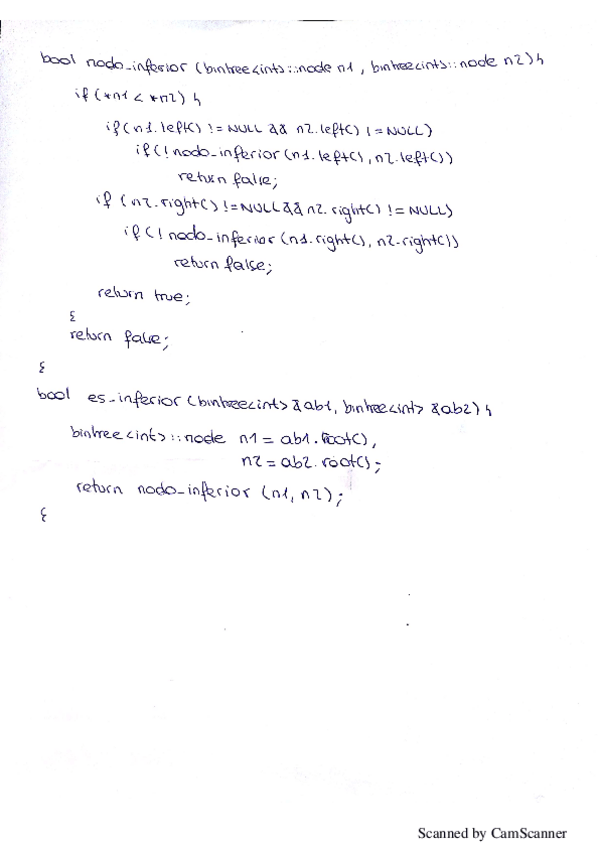 bool nodo_inferior (bintree<int>::node n1, bintree<int>::node n2){
if (*n1 < *n2) {
if (n1.left() != NULL && n2.left() != NULL)
if (!nodo_inferior (n1.left(), n2.left())
return false;
if (n2.right() != NULL && n2.right() != NULL)
if (!nodo_inferior (n1.right(), n2.right())
return false;
return true;
}
return false;
}
bool es_inferior (bintree<int> &ab1, bintree<int> &ab2) {
bintree<int>::node n1 = ab1.root(),
n2 = ab2.root();
return nodo_inferior (n1, n2);
}
Scanned by CamScanner